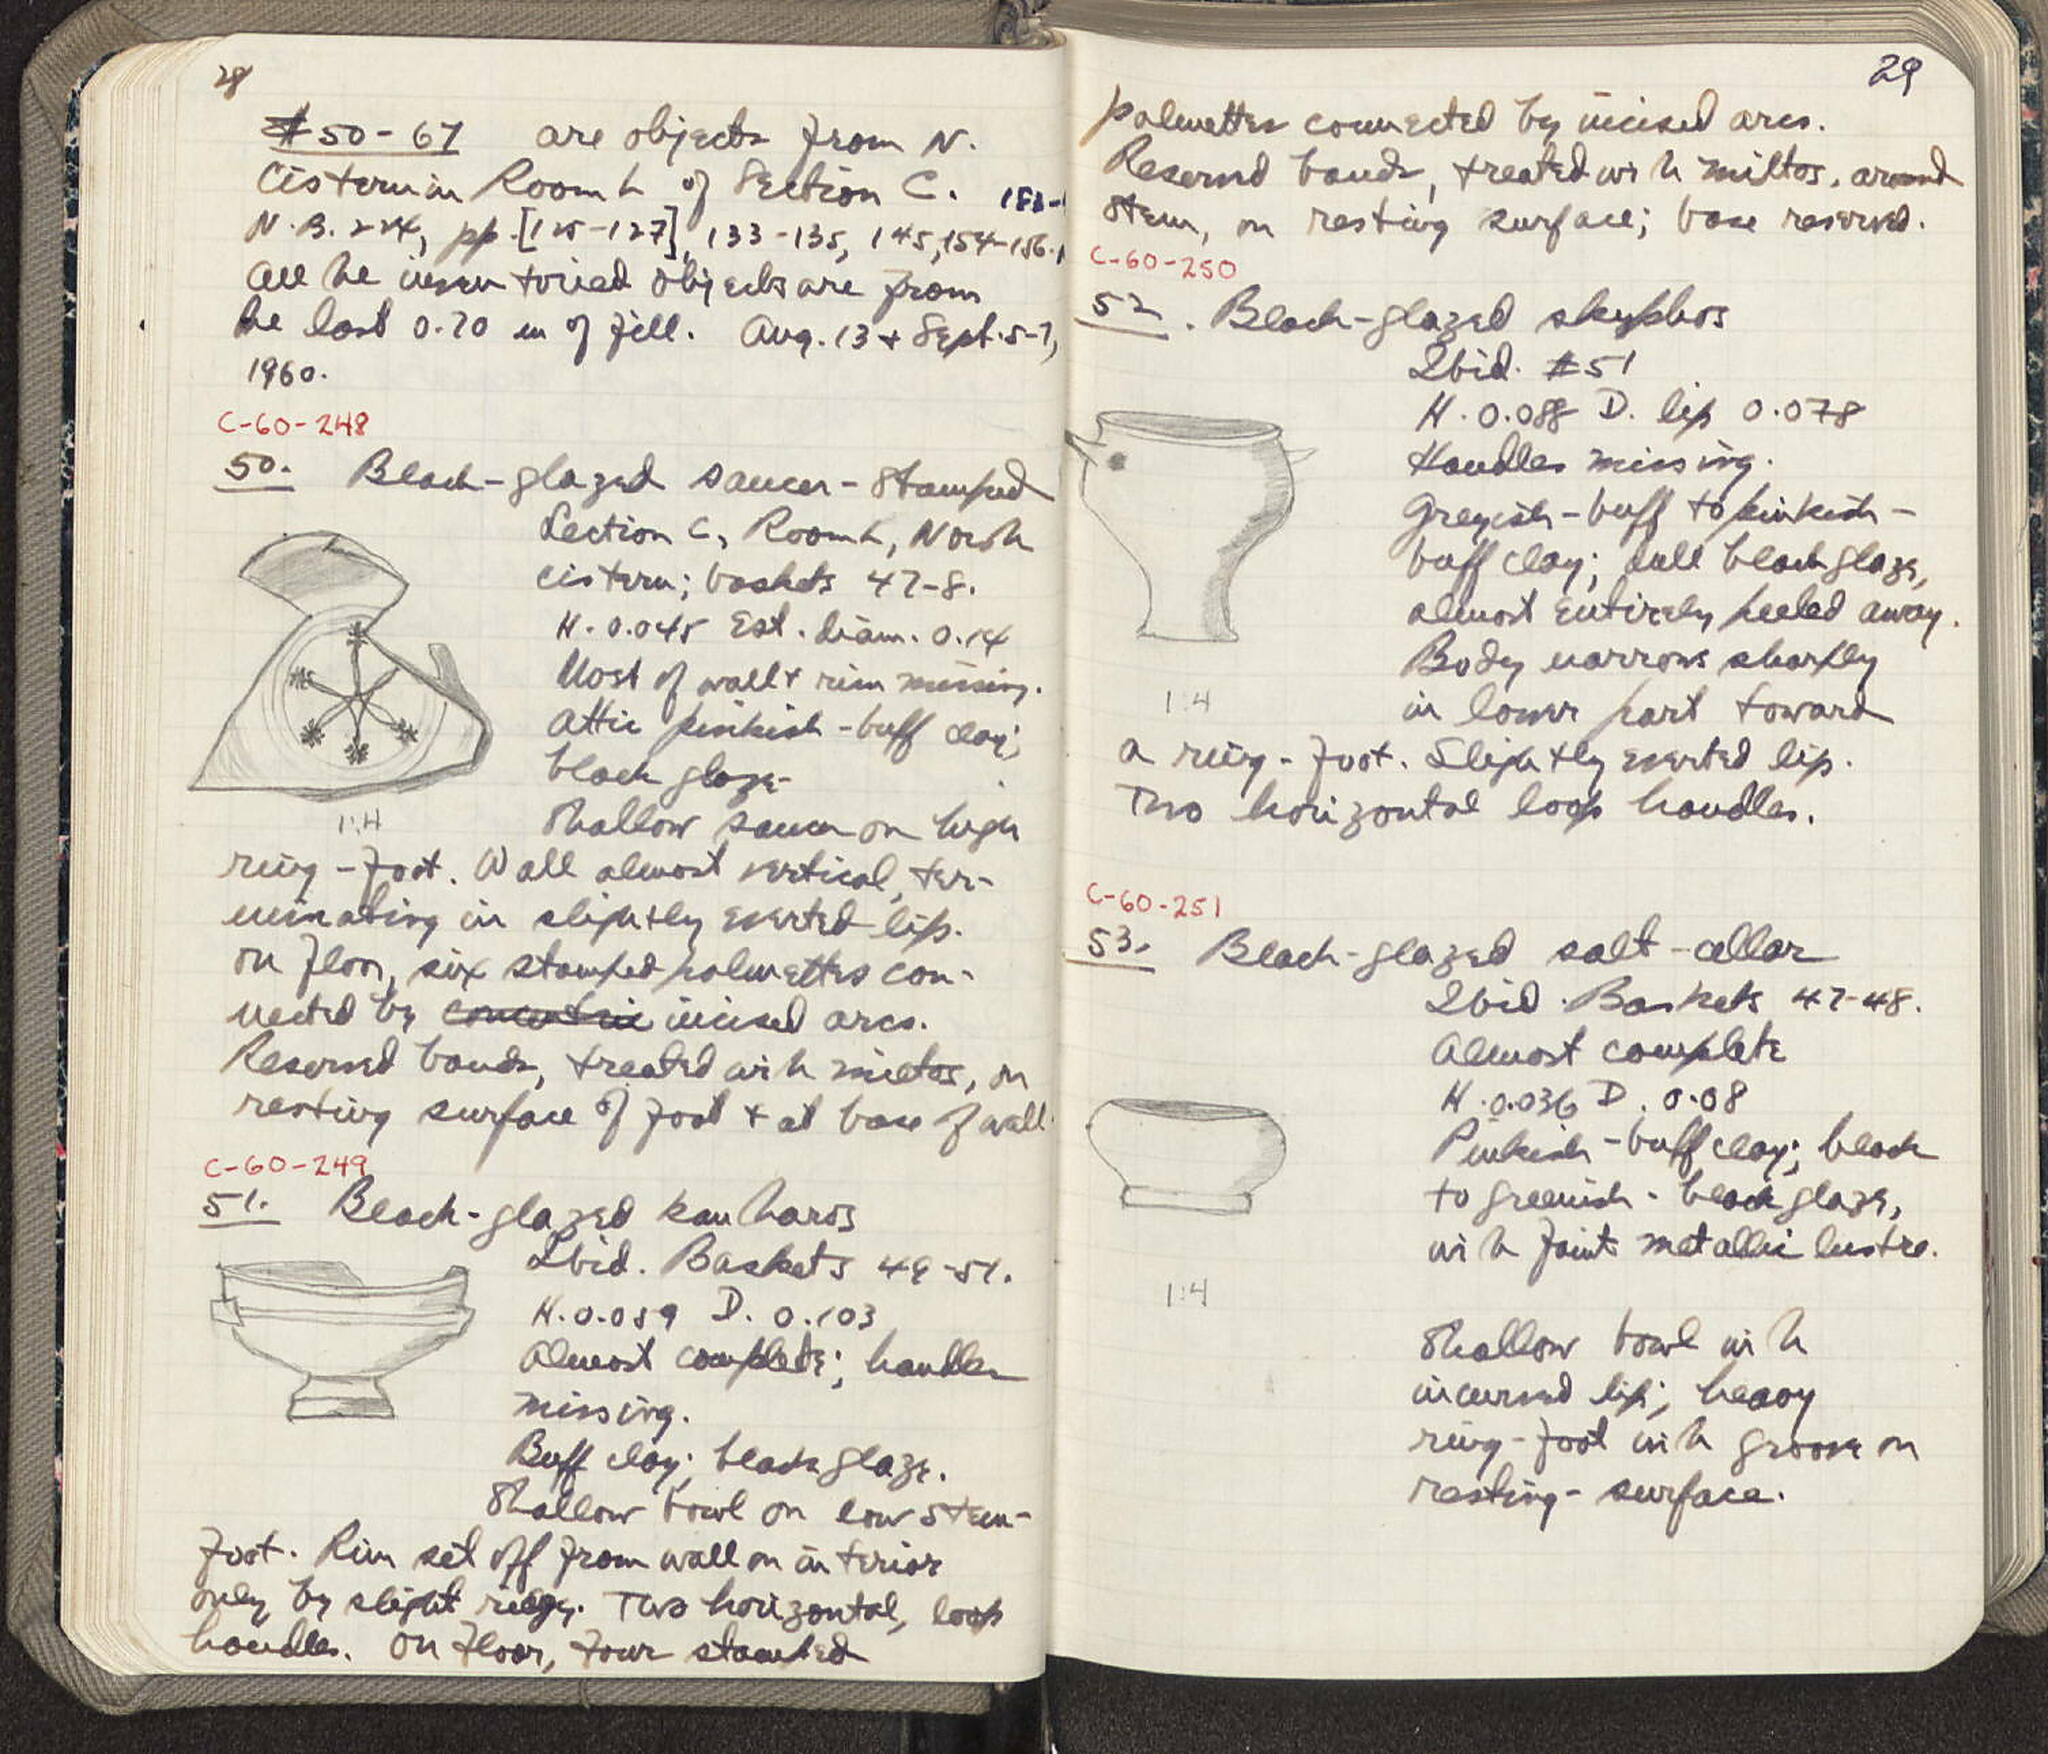 28
#50-67 are objects from N.
Cistern in Room L of Section C.
N.B. 224, pp. [125-127], 133-135, 145, 154-156.
All the inventoried objects are from
the last 0.70 m of fill. Aug. 13 + Sept. 5-7,
1960.
C-60-248
50. Black-glazed saucer - stamped
Section C, Room L, North
cistern; baskets 47-8.
H. 0.045 Est. diam. 0.14
Most of wall + rim missing.
Attic pinkish-buff clay;
black glaze
1:4
Shallow saucer on high
ring-foot. Wall almost vertical, ter-
minating in slightly everted lip.
On floor, six stamped palmettes con-
nected by concentric incised arcs.
Reserved bands, treated with miltos, on
resting surface of foot + at base of wall.
C-60-249
51. Black-glazed kantharos
Ibid. Baskets 49-51.
H. 0.059 D. 0.103
Almost complete; handles
missing.
Buff clay; black glaze.
Shallow bowl on low stem-
foot. Rim set off from wall on interior
only by slight ridge. Two horizontal, loop
handles. On floor, four stamped
29
palmettes connected by incised arcs.
Reserved bands, treated with miltos, around
stem, on resting surface; base reserved.
C-60-250
52. Black-glazed skyphos
Ibid. #51
H. 0.088 D. lip 0.078
Handles missing.
Greyish-buff to pinkish-
buff clay; dull black glaze,
almost entirely peeled away.
Body narrows sharply
1:4
in lower part toward
a ring-foot. Slightly everted lip.
Two horizontal loop handles.
C-60-251
53. Black-glazed salt-cellar
Ibid. Baskets 47-48.
Almost complete
H. 0.036 D. 0.08
Pinkish-buff clay; black
to greenish-black glaze,
with faint metallic lustre.
1:4
Shallow bowl with
incurved lip; heavy
ring-foot with groove on
resting-surface.